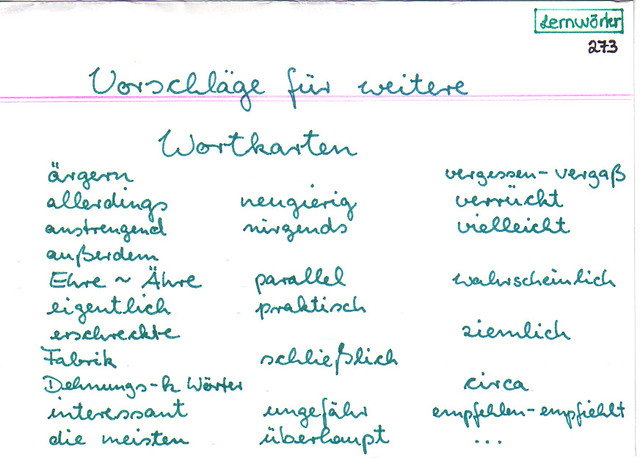 Lernwörter
273
Vorschläge für weitere
Wortkarten
ärgern vergessen - vergaß
allerdings neugierig verrückt
anstrengend nirgends vielleicht
außerdem
Ehre ~ Ähre parallel wahrscheinlich
eigentlich praktisch
erschreckte ziemlich
Fabrik schließlich
Dehnungs-h Wörter circa
interessant ungefähr empfehlen - empfiehlt
die meisten überhaupt ...